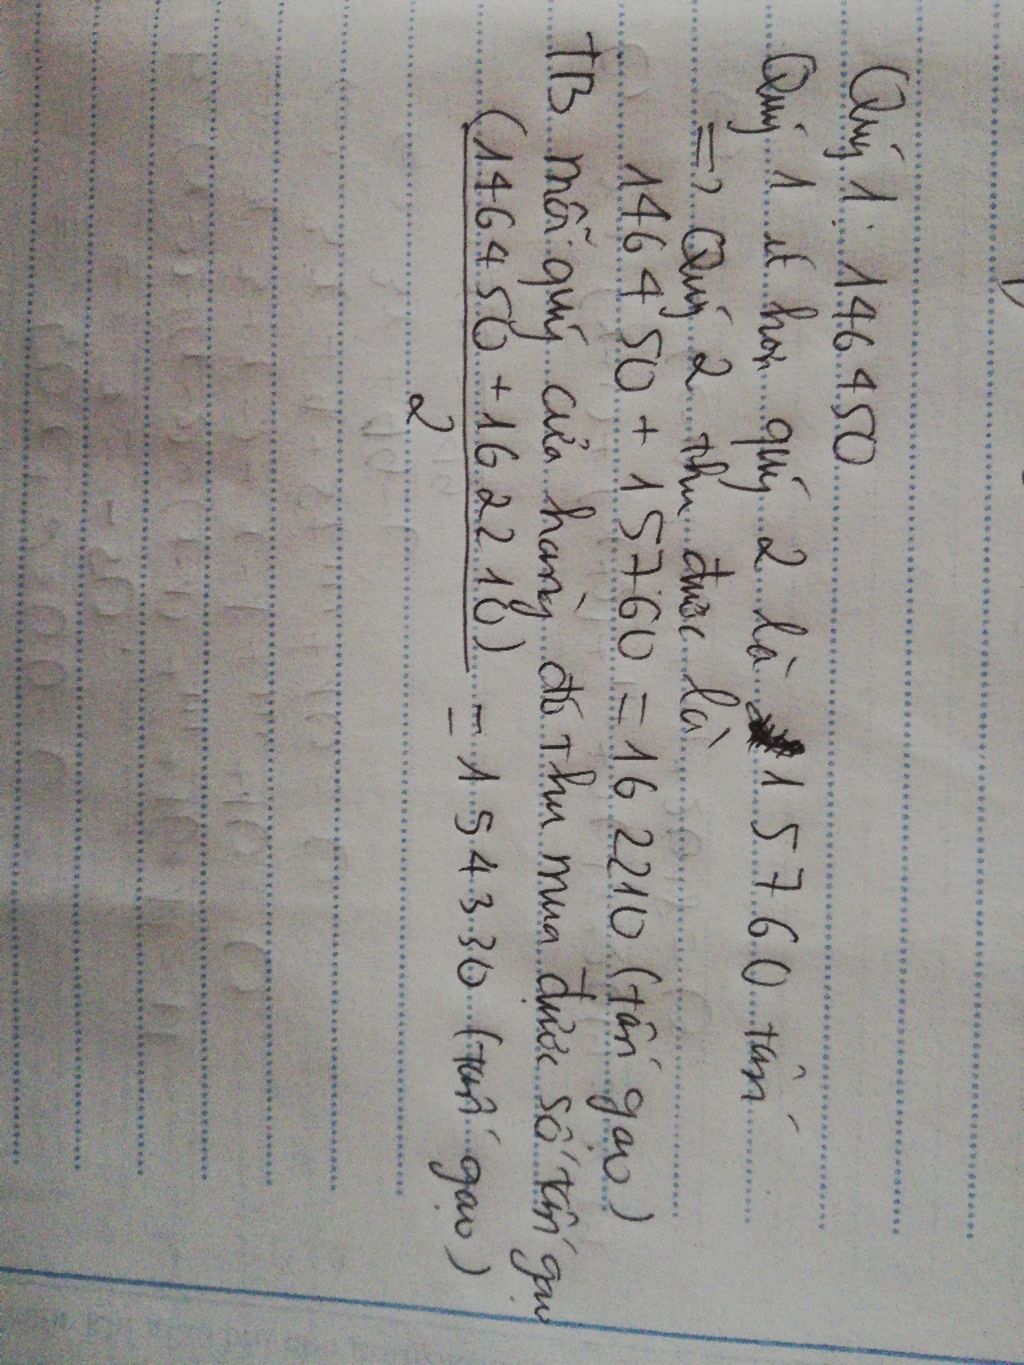 Quý 1: 146 450
Quý 1 ít hơn quý 2 là 15760 tấn
=> Quý 2 thu được là
146450 + 15760 = 162210 (tấn gạo)
TB mỗi quý cửa hàng đó thu mua được số tấn gạo
(146450 + 162210)
2
= 154330 (tấn gạo)